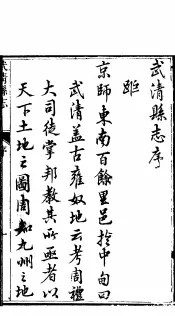 武清縣志序
距
京師東南百餘里邑於中甸曰
武清盖古雍奴地云考周禮
大司徒掌邦教其所亟者以
天下土地之圖周知九州之地
武清縣志